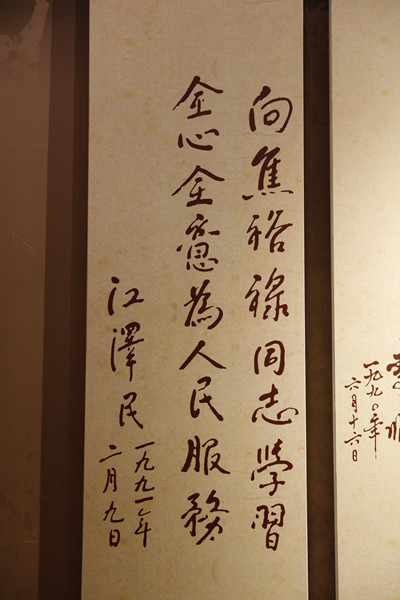 向焦裕祿同志學習
全心全意為人民服務
江澤民
一九九一年
二月九日
一九九〇年
六月十六日